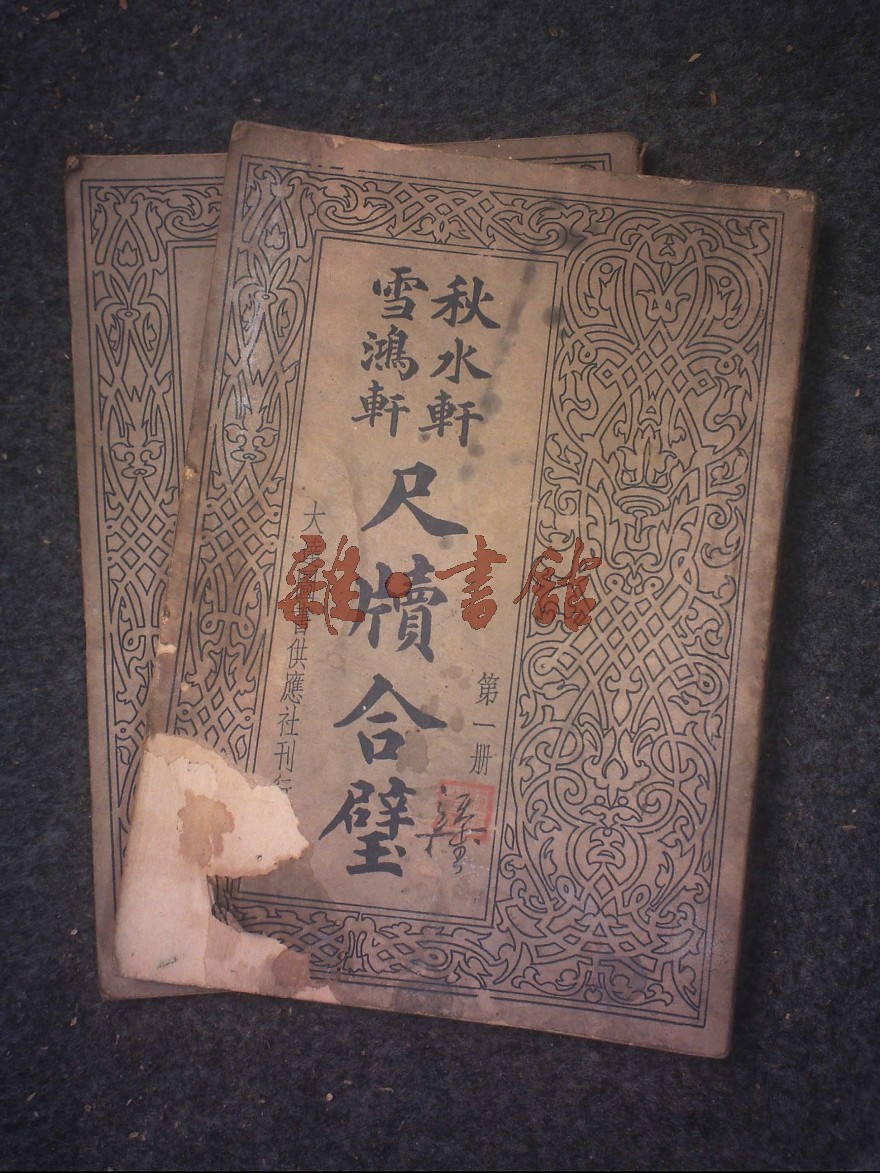 秋水軒
雪鴻軒
尺牘合璧
第一册
大達圖書供應社刊行
雜·書館